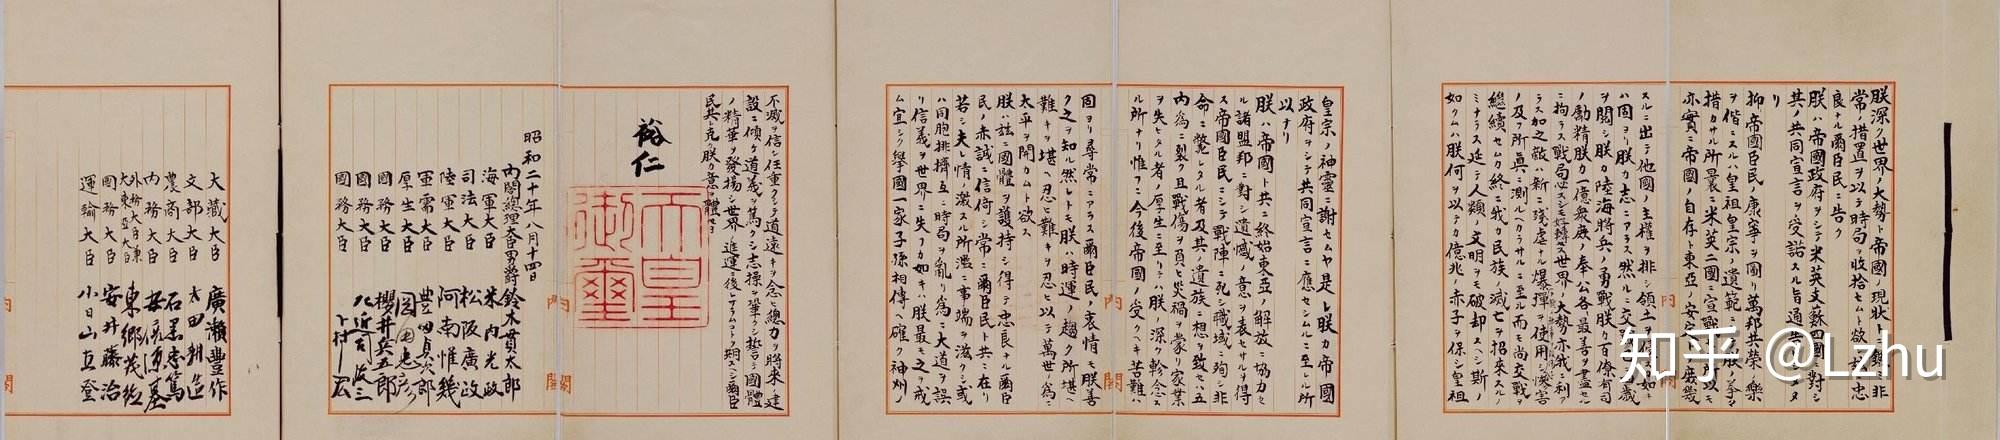 朕深ク世界ノ大勢ト帝國ノ現狀トニ鑑ミ非
常ノ措置ヲ以テ時局ヲ收拾セムト欲シ茲ニ忠
良ナル爾臣民ニ告ク
朕ハ帝國政府ヲシテ米英支蘇四國ニ對シ
其ノ共同宣言ヲ受諾スル旨通告セシメタ
リ
抑帝國臣民ノ康寧ヲ圖リ萬邦共榮ノ樂
ヲ偕ニスルハ皇祖皇宗ノ遺範ニシテ朕ノ拳々
措カサル所曩ニ米英二國ニ宣戰セル所以モ
亦實ニ帝國ノ自存ト東亞ノ安定トヲ庶幾
スルニ出テ他國ノ主權ヲ排シ領土ヲ侵スカ如キ
ハ固ヨリ朕カ志ニアラス然ルニ交戰已ニ四歲
ヲ閱シ朕カ陸海將兵ノ勇戰朕カ百僚有司
ノ勵精朕カ一億衆庶ノ奉公各最善ヲ盡セル
ニ拘ラス戰局必スシモ好轉セス世界ノ大勢亦我ニ利ア
ラス加之敵ハ新ニ殘虐ナル爆彈ヲ使用シテ頻ニ無辜ヲ殺傷シ慘害
ノ及フ所眞ニ測ルヘカラサルニ至ル而モ尚交戰ヲ
繼續セムカ終ニ我カ民族ノ滅亡ヲ招來スルノ
ミナラス延テ人類ノ文明ヲモ破却スヘシ斯ノ
如クムハ朕何ヲ以テカ億兆ノ赤子ヲ保シ皇祖
皇宗ノ神靈ニ謝セムヤ是レ朕カ帝國
政府ヲシテ共同宣言ニ應セシムルニ至レル所
以ナリ
朕ハ帝國ト共ニ終始東亞ノ解放ニ協力セ
ル諸盟邦ニ對シ遺憾ノ意ヲ表セサルヲ得
ス帝國臣民ニシテ戰陣ニ死シ職域ニ殉シ非
命ニ斃レタル者及其ノ遺族ニ想ヲ致セハ五
內爲ニ裂ク且戰傷ヲ負ヒ災禍ヲ蒙リ家業
ヲ失ヒタル者ノ厚生ニ至リテハ朕ノ深ク軫念ス
ル所ナリ惟フニ今後帝國ノ受クヘキ苦難ハ
固ヨリ尋常ニアラス爾臣民ノ衷情モ朕善
ク之ヲ知ル然レトモ朕ハ時運ノ趨ク所堪ヘ
難キヲ堪ヘ忍ヒ難キヲ忍ヒ以テ萬世ノ爲ニ
太平ヲ開カムト欲ス
朕ハ茲ニ國體ヲ護持シ得テ忠良ナル爾臣
民ノ赤誠ニ信倚シ常ニ爾臣民ト共ニ在リ
若シ夫レ情ノ激スル所濫ニ事端ヲ滋クシ或
ハ同胞排擠互ニ時局ヲ亂リ爲ニ大道ヲ誤
リ信義ヲ世界ニ失フカ如キハ朕最モ之ヲ戒
ム宜シク擧國一家子孫相傳ヘ確ク神州ノ
不滅ヲ信シ任重クシテ道遠キヲ念ヒ總力ヲ將來ノ建
設ニ傾ケ道義ヲ篤クシ志操ヲ鞏クシ誓テ國體
ノ精華ヲ發揚シ世界ノ進運ニ後レサラムコトヲ期スヘシ爾臣
民其レ克ク朕カ意ヲ體セヨ
裕仁
天皇
御璽
昭和二十年八月十四日
內閣總理大臣男爵 鈴木貫太郎
海軍大臣 米內光政
司法大臣 松阪廣政
陸軍大臣 阿南惟幾
軍需大臣 豐田貞次郎
厚生大臣 岡田忠彥
國務大臣 櫻井兵五郎
國務大臣 左近司政三
國務大臣 下村宏
大藏大臣 廣瀨豐作
文部大臣 太田耕造
農商大臣 石黑忠篤
內務大臣 安倍源基
外務大臣兼
大東亞大臣 東鄉茂德
國務大臣 安井藤治
運輸大臣 小日山直登
內閣
內閣
知乎 @Lzhu